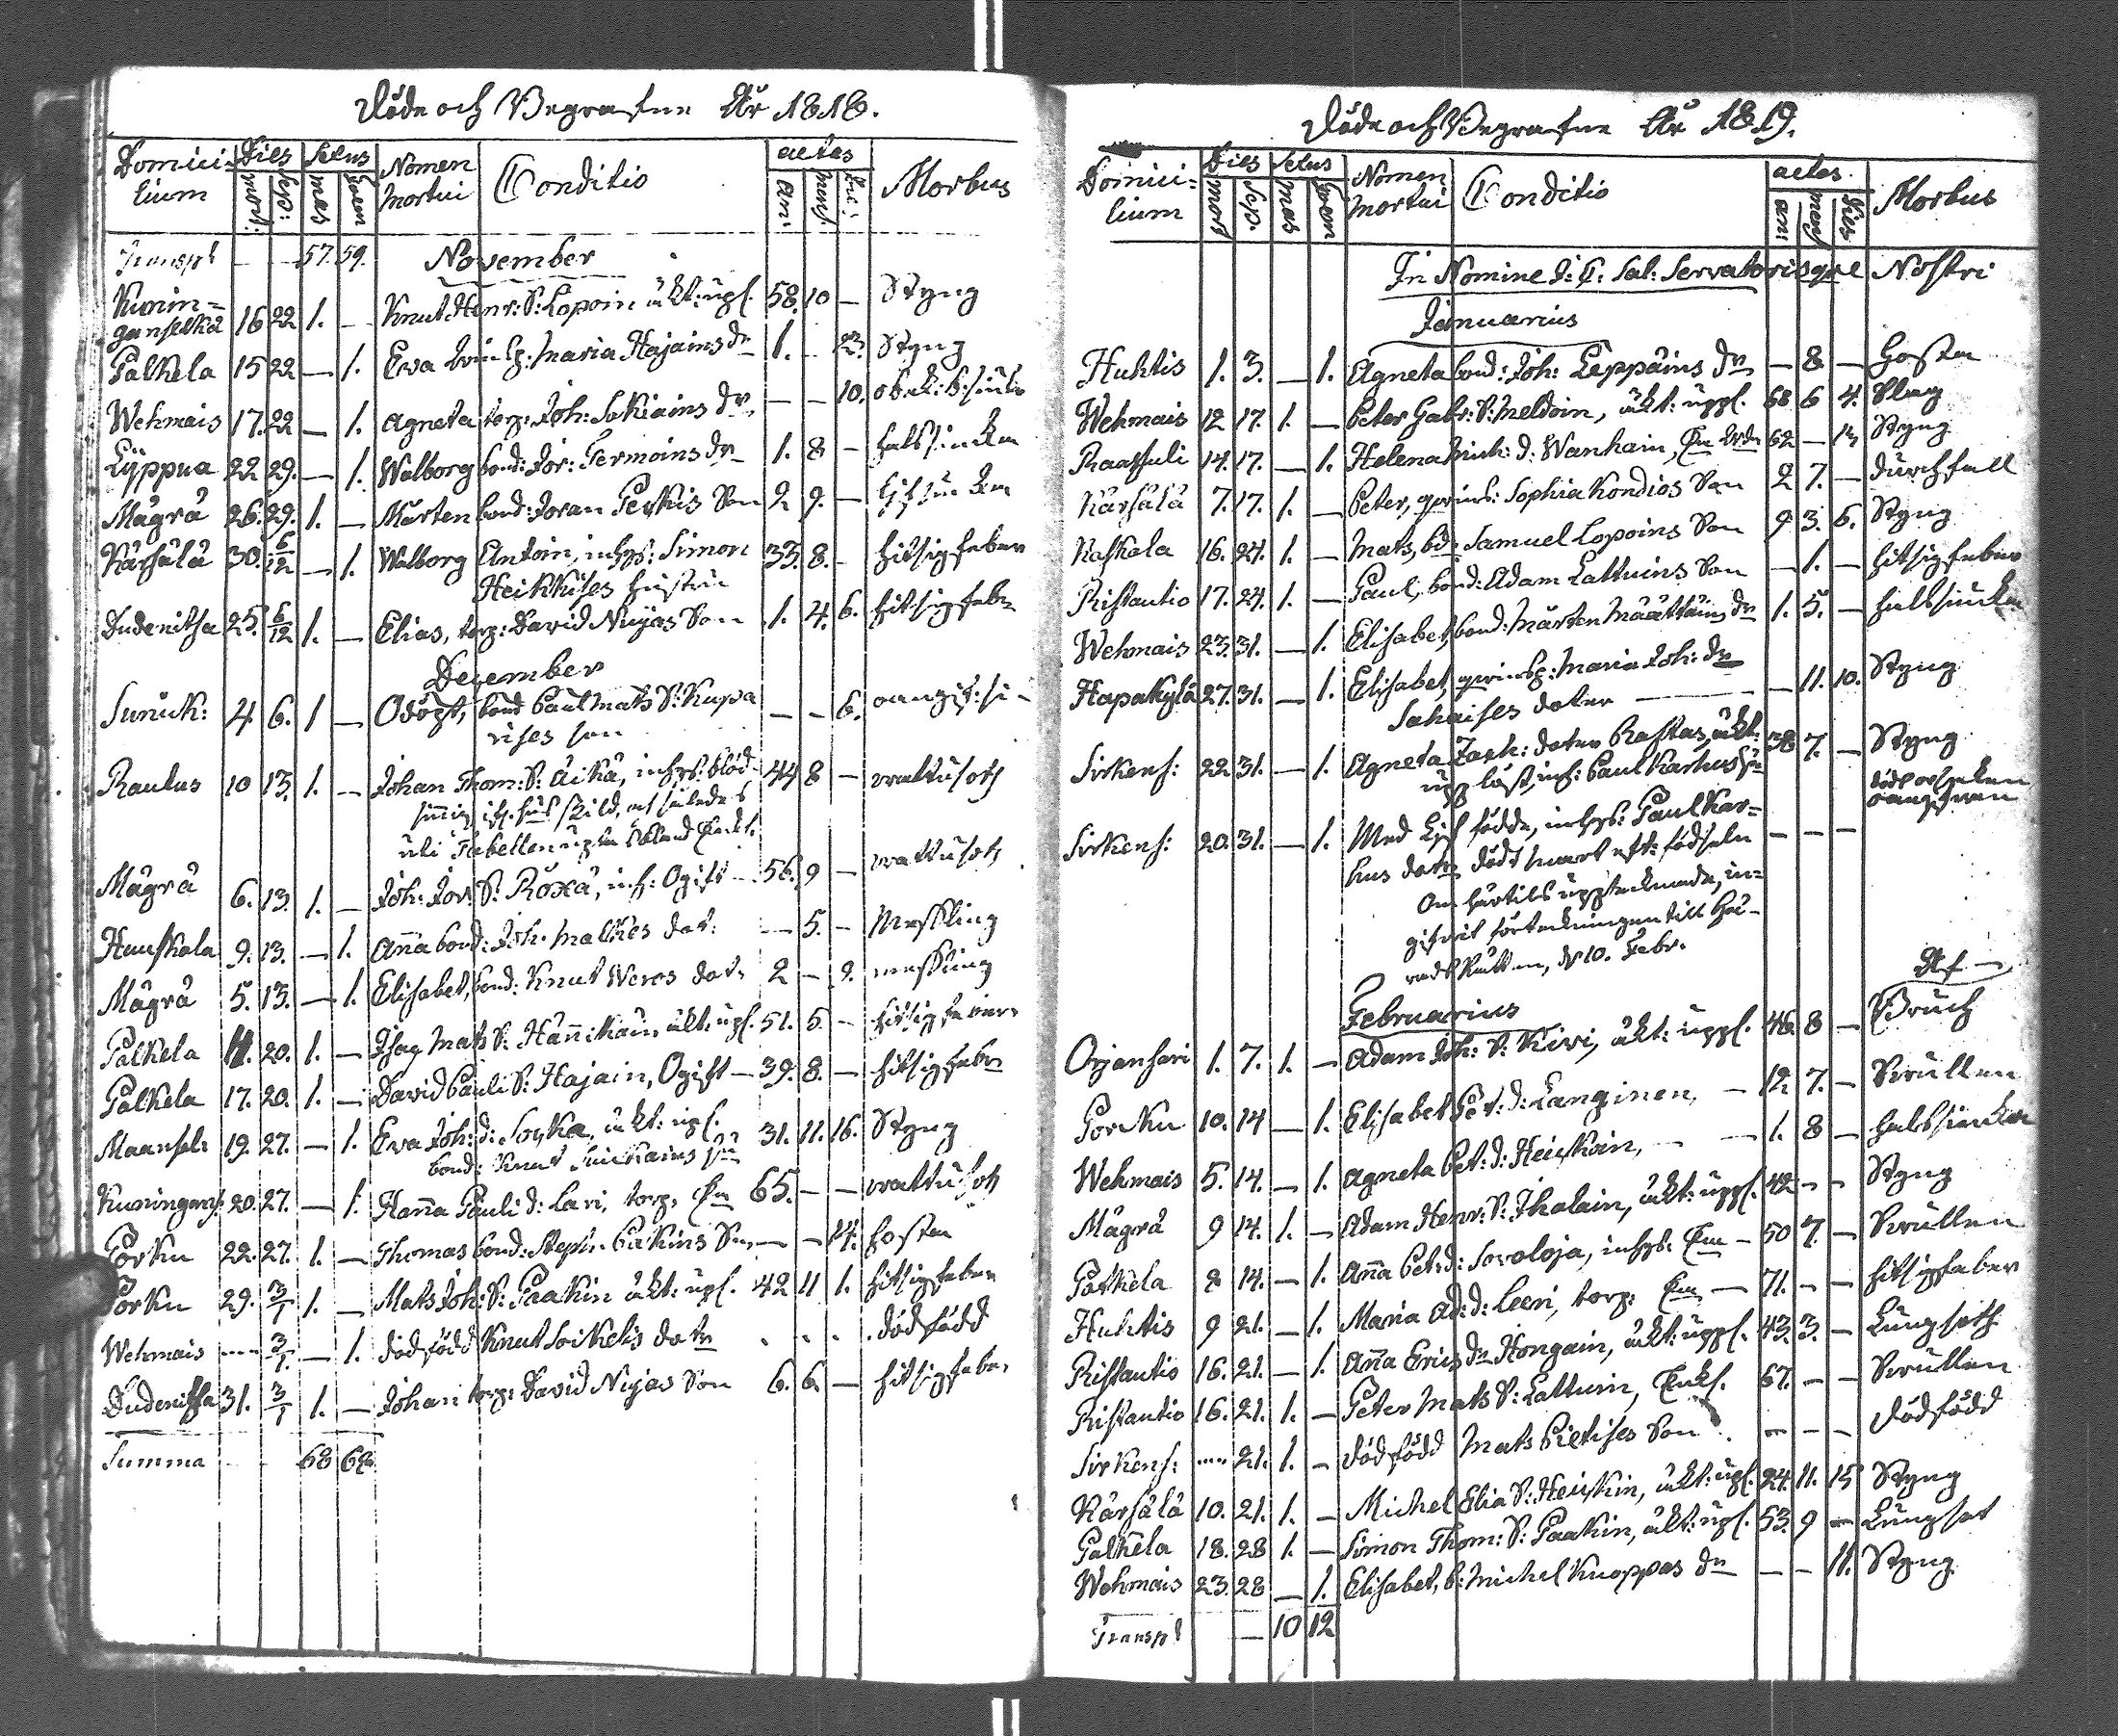 Döde och Begrafne År 1818.
Domicilium Dies mort: Sep: Sexus mas foem Nomen mortui Conditio aetas an: mens: di: Morbus
Transpt — — 57. 59. November
Kunin=
ganselkä 16 22 1. — Knut Henr: S: Lopoin äkt: upl. 58. 10 — Styng
Palkela 15 22 — 1. Ewa Maria Hajains dr 1. — Styng
Wehmais 17. 22 — 1. Agneta torp: Joh: Sokiains dr — — 10.
Lyppua 22 29. — 1. Walborg bond: Jör: Termoins dr 1. 8 — halssiukan
Mägrä 26. 29. 1. — Mårten bond: Jöran Son 2 9. —
Kärsälä 30. 6/12 — 1. Walborg Antoin, inhys: Simon 33. 8. — hitsig feber
Heikkises hustru
Dudenitsa 25. 6/12 1. — Elias, torp: David Nujas Son 1. 4. 6. hitsig feber
December
Suruk: 4 6. 1 — Odöpt, bond Paul Mats S: Kupa — — 6.
ises son
Rautus 10 13. 1. — Johan Thom: S: Äikä, inhys: 44 8 — wattusot
uti Tabellen
Mägrä 6. 13. 1. — Joh: Jör: S: Röxä, inh: Ogift — 56. 9 — wattusot
Haustala 9. 13. — 1. Anna bond: Joh. Malkes dot: — 5. — Messling
Mägrä 5. 13. — 1. Elisabet, bond: Knut Weros dot. 2 — 9. messling
Palkela 11. 20. 1. — Isac Mats S: Hännikäin äkt: upl. 51. 5. — hitsig feber
Palkela 17. 20. 1. — David Pauli S: Hajain, Ogift — 39. 8. — hitsig feber
Maansel: 19. 27. — 1. Ewa Joh: d: Soika, äkt: upl. 31. 11. 16. Styng
bond: Knut
Kuningans: 20. 27. — 1. Hanna Pauli d: Lari, torp. En 65. — — wattusot
Porku 22. 27. 1. — Thomas bond: Steph: Päkins Son — — 14. hosta
Porku 29. 3/1 1. — Mats Joh: S: Paakin äkt: upl. 42 11 1. hitsig feber
Wehmais --- 3/1. — 1. dödfödd Knut Soikelis dotr . . . dödfödd
Dudenitsa 31. 3/1 1. — Johan torp: David Nujas Son 6. 6. — hitsig feber
Summa 68 69
Döde och Begrafne År 1819.
Domicilium Dies mort Sep. Sexus mas foem Nomen mortui Conditio aetas. an: mens dies Morbus
In Nomine D: C: Sal: Servatorisque Nostri
Januarius
Huhtis 1. 3. — 1. Agneta bond: Joh: Leppäins dr — 8 — hosta
Wehmais 12 17. 1. — Peter Gabr: S: Meldoin, äkt: uppl. 68 6 4. Slag
Raasuli 14. 17. — 1. Helena Mich: d: Wanhain, En 62 — 14 Styng
Kärsälä 7. 17. 1. — Peter, Sophia Kondias Son 2 7. — durchfall
Kaskala 16. 24. 1. — Mats, bd: Samuel Lopoins Son 9 3. 6. Styng
Ristautio 17. 24. 1. — Paul, bond: Adam Lattuins Son — 1. — hitsig feber
Wehmais 23. 31. — 1. Elisabet, bond: Mårten Määttäin dr 1. 5. — halssiukan
Hapakylä 27. 31. — 1. Elisabet, Maria Joh: dr — 11. 10. Styng
Sahaises doter
Sirkens: 22 31. — 1. Agneta Zach: doter Rastas, äkt: 38 7. — Styng
upplöst, inh: Paul Karhus hu
Sirkens: 20. 31. — 1. Med Lif födde, inhys: Paul Kar= — — —
hus dotr, död snart eft: födseln
Om härtils upptecknade, in=
gifwit förteckningen till Hä=
radsRätten, d 10. Febr.
Februarius
Orjansari 1. 7. 1. — Adam Joh: S: Kiwi, äkt: uppl. 46. 8 — Bruch
Porku 10. 14 — 1. Elisabet Pet: d: Langinen, — 12 7. — Swullen
Wehmais 5. 14. — 1. Agneta Pet: d: Heiskain, — 1. 8 — halssiukan
Mägrä 9 14. 1. — Adam Henr: S: Ihalain, äkt: uppl. 42 — — Styng
Palkela 8 14. — 1. Anna Pet: d: Soroloja, inhys: En — 50 7. — Swullen
Huhtis 9 21. — 1. Maria Ad: d: Leeri, torp: En — 71. — — hitsig feber
Ristautio 16. 21. — 1. Anna Erics dr Hongain, äkt: uppl. 43. 3. — Lungsoth
Ristautio 16. 21. 1. — Peter Mats S: Lattuin, Enkl. 67. — — Swullen
Sirkens: --- 21. 1. — Dödfödd Mats Pietises Son . — — — Dödfödd
Kärsälä 10. 21. 1. — Michel Elia S: Heiskin, äkt: upl. 24. 11. 15 Styng
Palkela 18. 28 1. — Simon Thom: S: Paakin, äkt: upl. 53. 9 — Lungsot
Wehmais 23. 28 — 1. Elisabet, b: Michel Knoppas dr — — 11. Styng
Transpt — 10 12